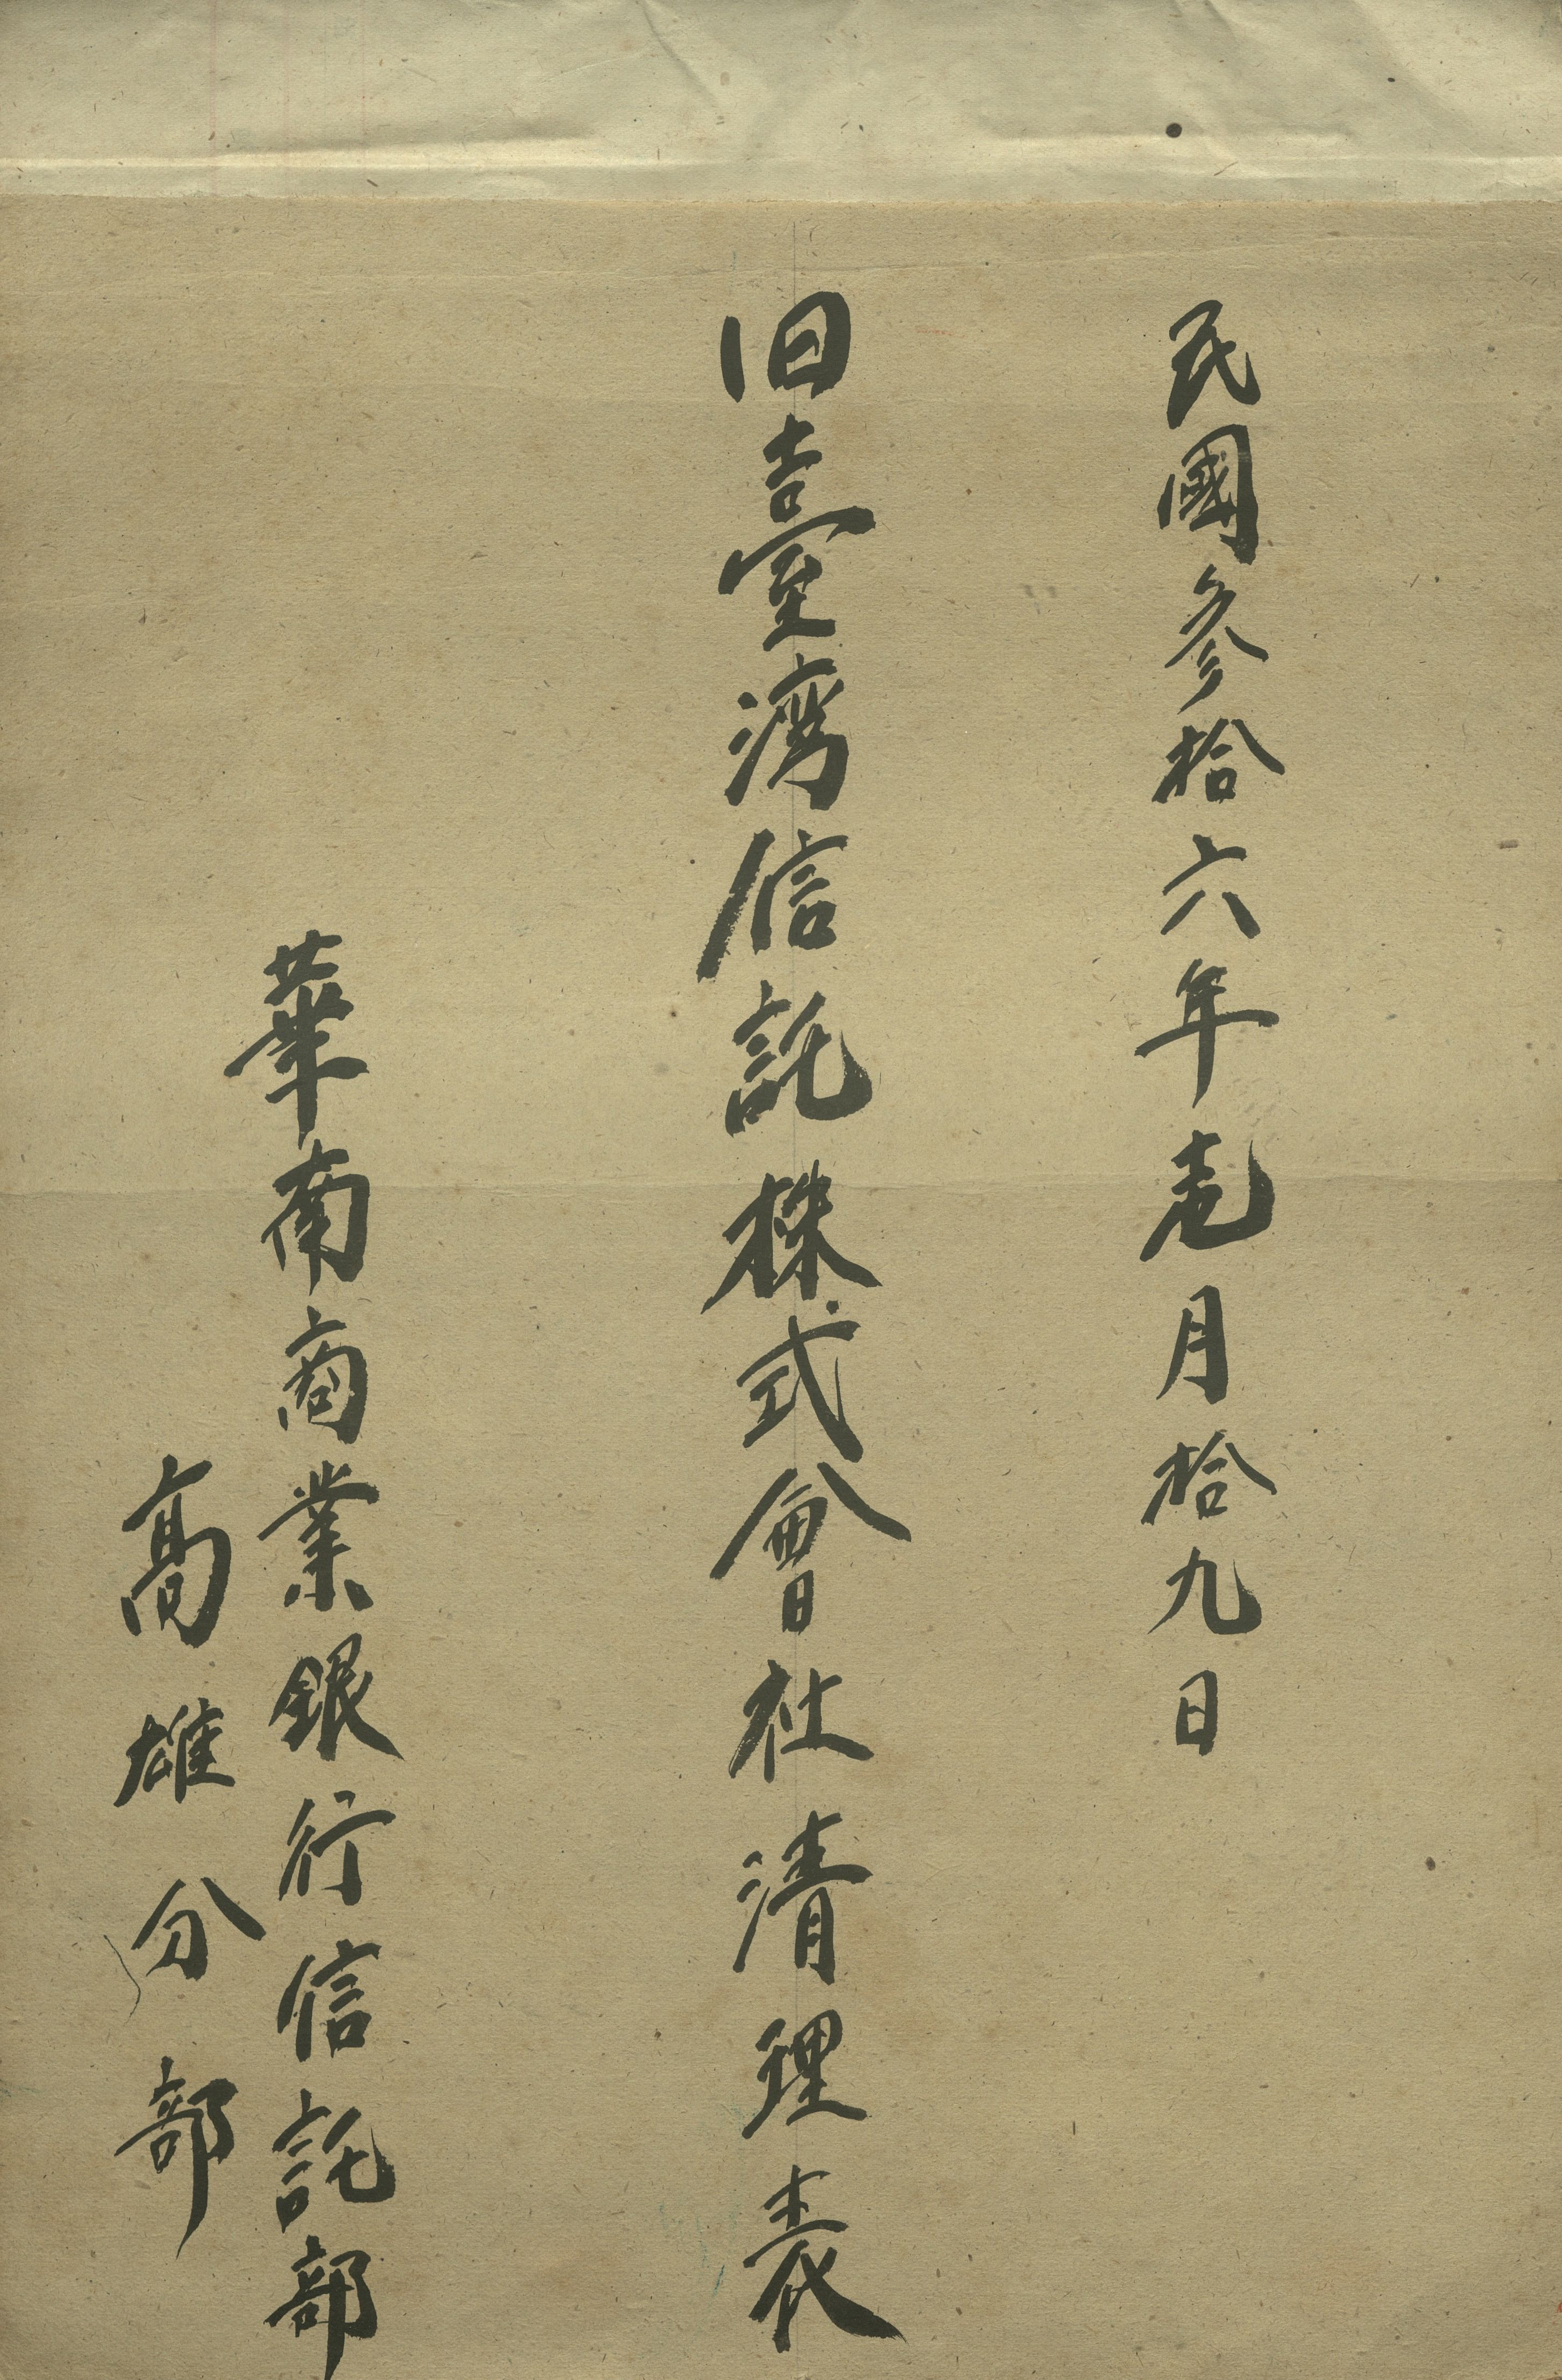 民國參拾六年壱月拾九日
旧臺湾信託株式會社清理表
華南商業銀行信託部
高雄分部